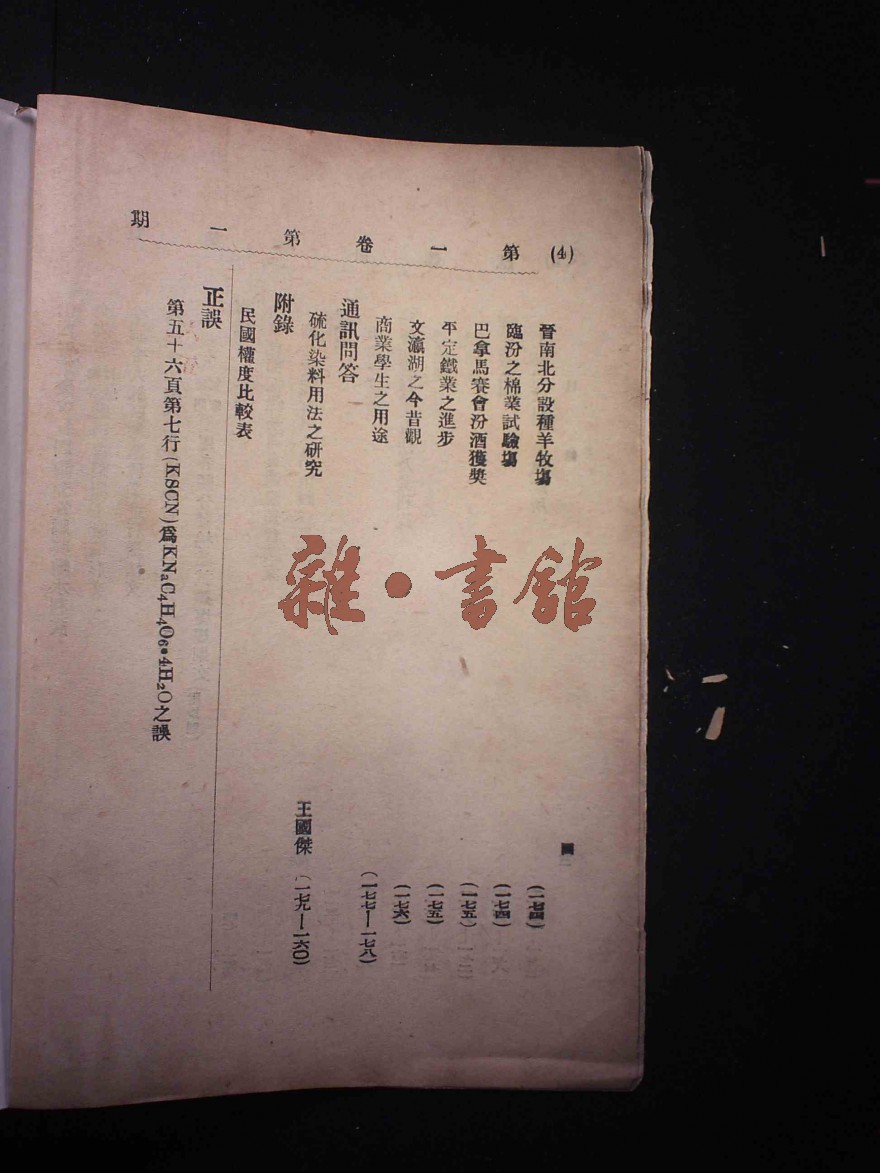 (4) 第一卷第一期
四
晉南北分設種羊牧塲 (一七四)
臨汾之棉業試驗塲 (一七四)
巴拿馬賽會汾酒獲獎 (一七五)
平定鐵業之進步 (一七五)
文瀛湖之今昔觀 (一七六)
商業學生之用途 (一七七—一七八)
通訊問答
硫化染料用法之研究 王國傑 (一七九—一六〇)
附錄
民國權度比較表
正誤
第五十六頁第七行(KSCN)爲KNaC₄H₄O₆•4H₂O之誤
雜•書館